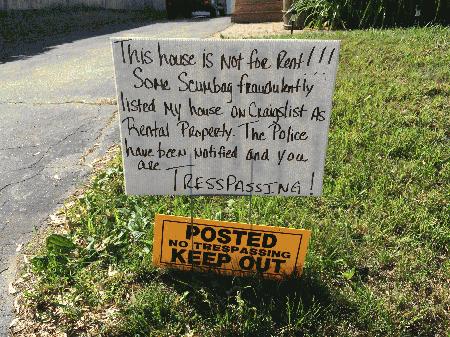 This house is Not for Rent!!!
Some Scumbag fraudulently
listed my house on Craigslist As
Rental Property. The Police
have been notified and you
are TRESSPASSING!
POSTED
NO TRESPASSING
KEEP OUT